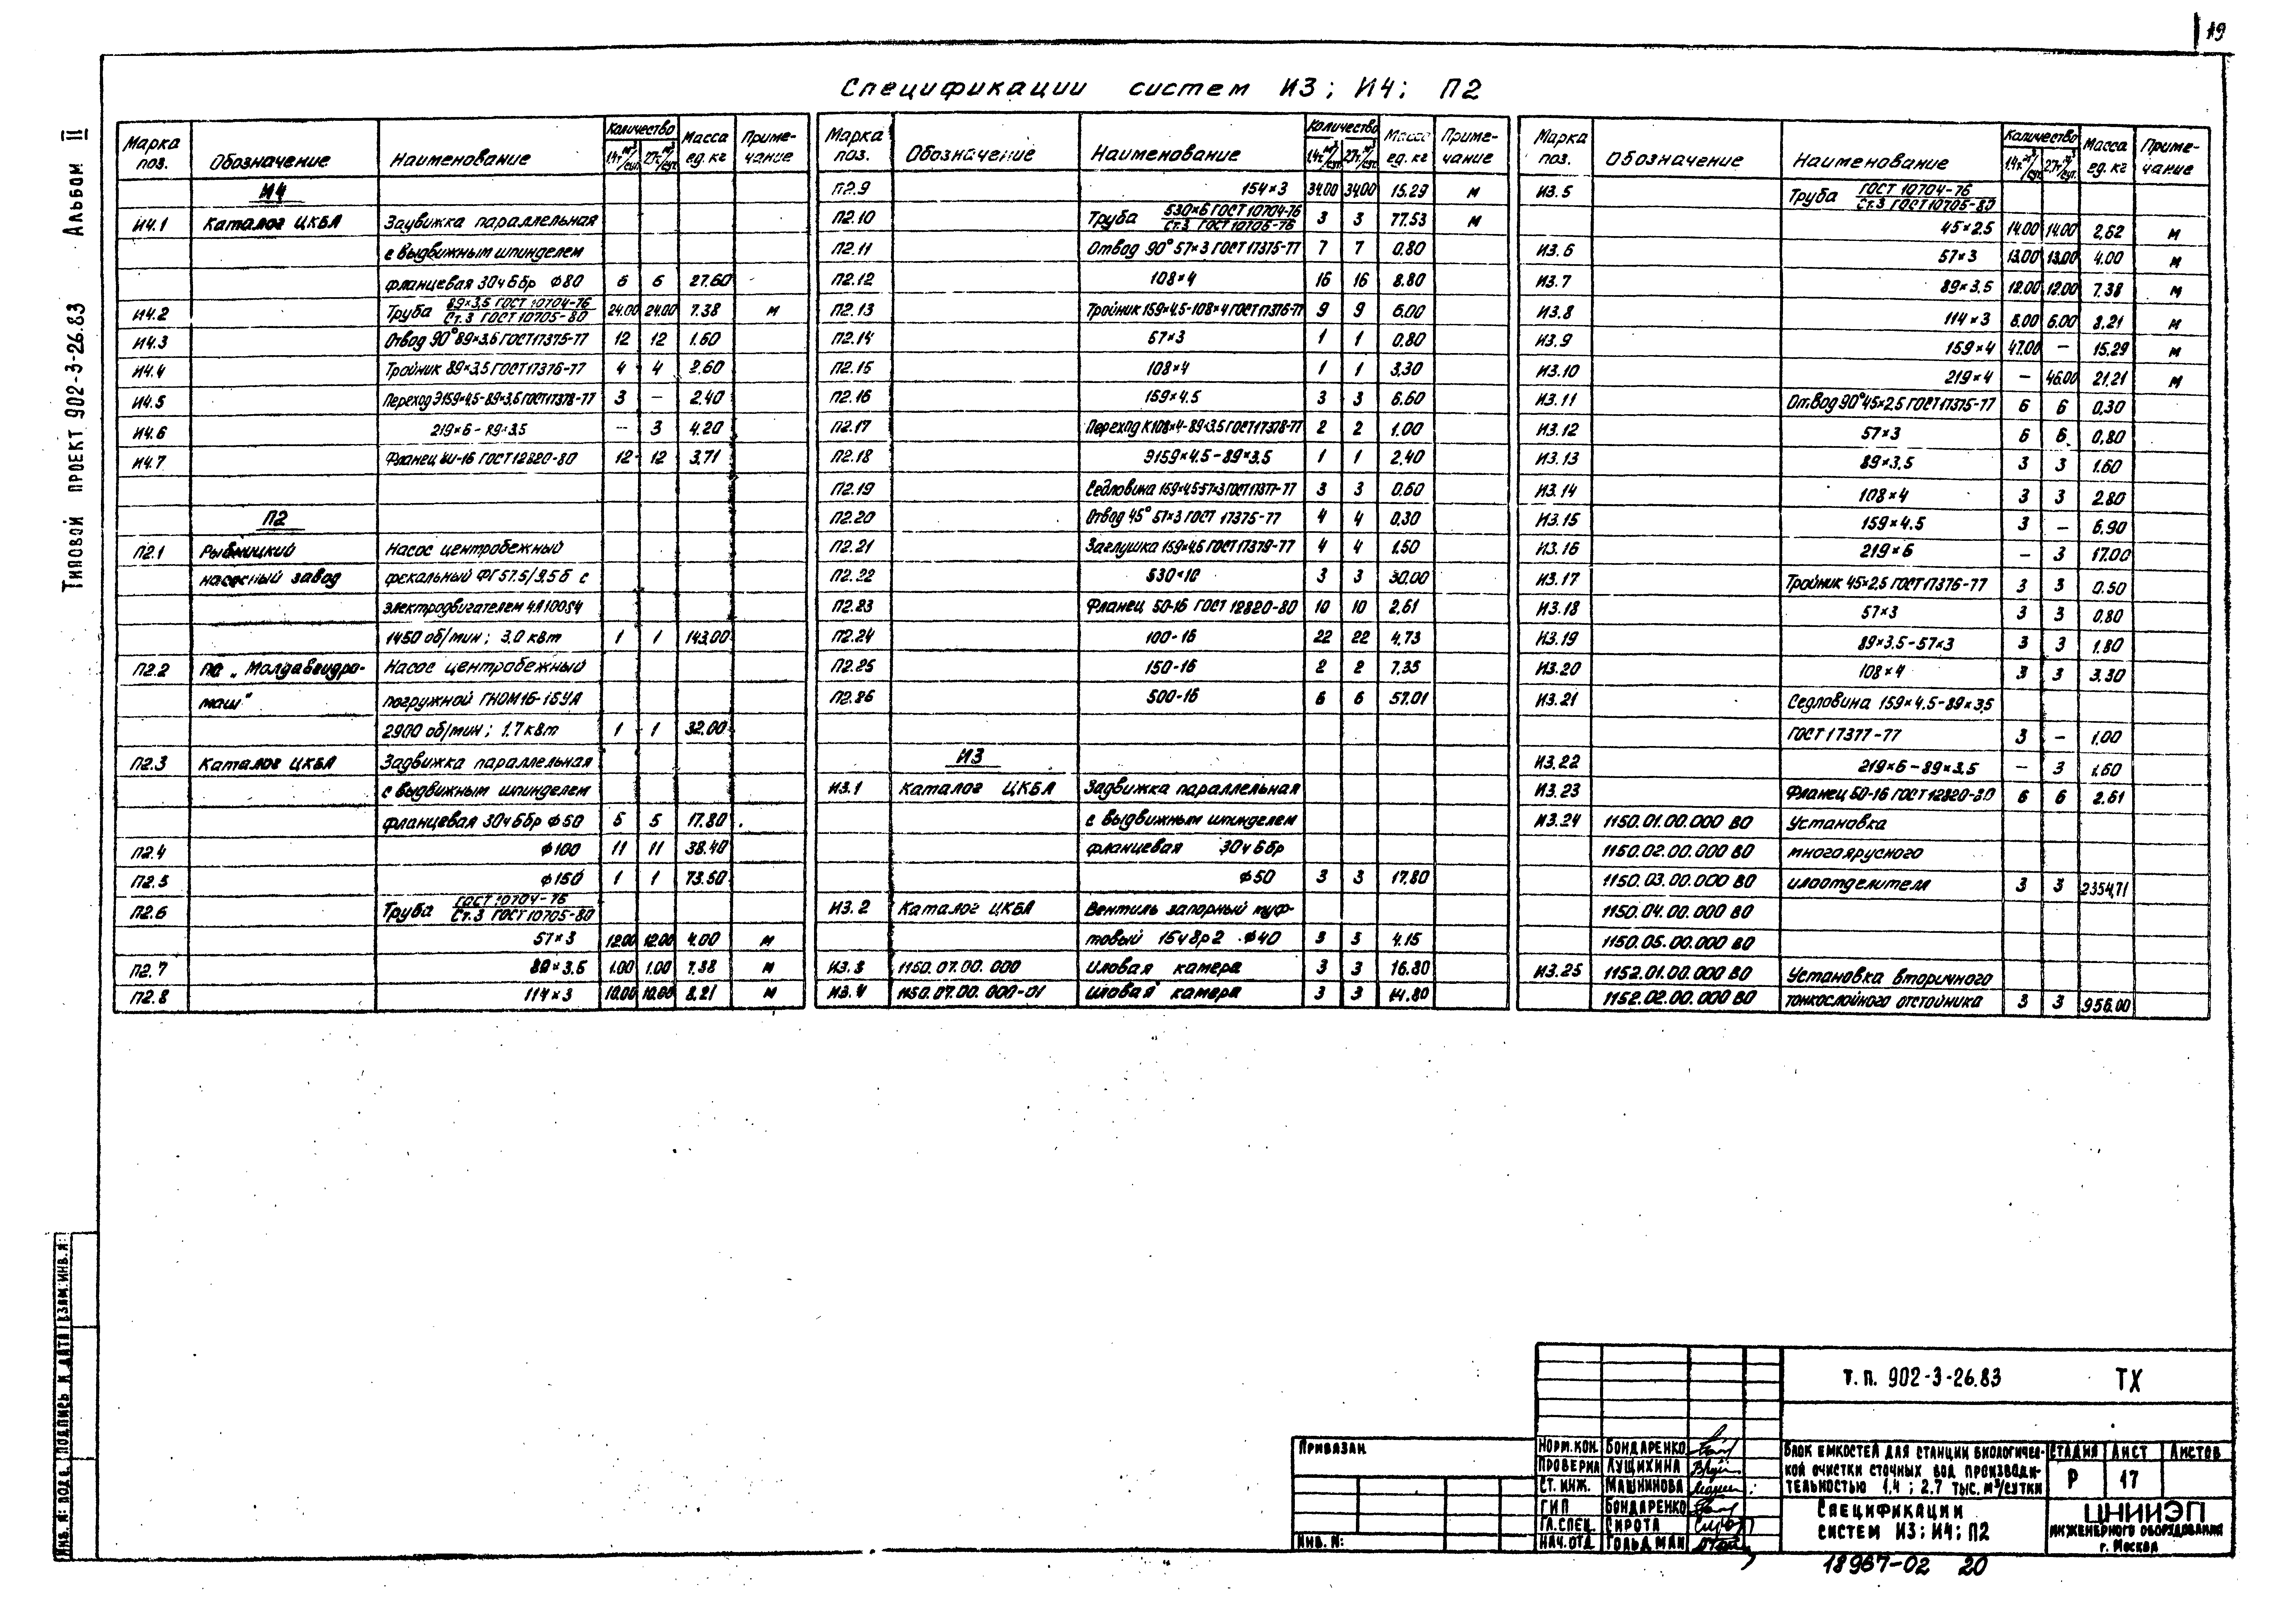 19
Типовой проект 902-3-26.83 Альбом II
Спецификации систем И3; И4; П2
Марка поз. Обозначение Наименование Количество 1.4т.м³/сут. 2.7т.м³/сут. Масса ед. кг Примечание
И4
И4.1 Каталог ЦКБА Задвижка параллельная
с выдвижным шпинделем
фланцевая 30ч6бр ф80 6 6 27.60
И4.2 Труба 89×3,5 ГОСТ 10704-76 / Ст.3 ГОСТ 10705-80 24.00 24.00 7.38 м
И4.3 Отвод 90° 89×3.5 ГОСТ 17375-77 12 12 1.60
И4.4 Тройник 89×3.5 ГОСТ 17376-77 4 4 2.60
И4.5 Переход Э159×4,5-89×3,5 ГОСТ 17378-77 3 — 2.40
И4.6 219×6-89×3.5 — 3 4.20
И4.7 Фланец ГОСТ 12820-80 12 12 3,71
П2
П2.1 Рыбницкий Насос центробежный
насосный завод фекальный ФГ 57.5/9.5б с
электродвигателем 4А100S4
1450 об/мин; 3.0 кВт 1 1 143.00
П2.2 ПО „Молдавгидро- Насос центробежный
маш" погружной ГНОМ 16-15УА
2900 об/мин; 1.7 кВт 1 1 32.00
П2.3 Каталог ЦКБА Задвижка параллельная
с выдвижным шпинделем
фланцевая 30ч6бр ф50 5 5 17.80
П2.4 ф100 11 11 38.40
П2.5 ф150 1 1 73.50
П2.6 Труба ГОСТ 10704-76 / Ст.3 ГОСТ 10705-80
57×3 12.00 12.00 4.00 м
П2.7 89×3.5 1.00 1.00 7.38 м
П2.8 114×3 10.00 10.00 8.21 м
Марка поз. Обозначение Наименование Количество 1.4т.м³/сут. 2.7т.м³/сут. Масса ед. кг Примечание
П2.9 154×3 34.00 34.00 15.29 м
П2.10 Труба 530×6 ГОСТ 10704-76 / Ст.3 ГОСТ 10706-76 3 3 77.53 м
П2.11 Отвод 90° 57×3 ГОСТ 17375-77 7 7 0.80
П2.12 108×4 16 16 8.80
П2.13 Тройник 159×4.5-108×4 ГОСТ 17376-77 9 9 6.00
П2.14 57×3 1 1 0.80
П2.15 108×4 1 1 3.30
П2.16 159×4.5 3 3 6.60
П2.17 Переход К108×4-89×3.5 ГОСТ 17378-77 2 2 1.00
П2.18 Э159×4.5-89×3.5 1 1 2.40
П2.19 Седловина 159×4.5-57×3 ГОСТ 17377-77 3 3 0.60
П2.20 Отвод 45° 57×3 ГОСТ 17375-77 4 4 0.30
П2.21 Заглушка 159×4.5 ГОСТ 17379-77 4 4 1.50
П2.22 530×10 3 3 30.00
П2.23 Фланец 50-16 ГОСТ 12820-80 10 10 2.61
П2.24 100-16 22 22 4.73
П2.25 150-16 2 2 7.35
П2.26 500-16 6 6 57.01
И3
И3.1 Каталог ЦКБА Задвижка параллельная
с выдвижным шпинделем
фланцевая 30ч6бр
ф50 3 3 17.80
И3.2 Каталог ЦКБА Вентиль запорный муф-
товый 15ч8р2 ф40 3 3 4.15
И3.3 1150.07.00.000 Иловая камера 3 3 16.80
И3.4 1150.07.00.000-01 Иловая камера 3 3 14.80
Марка поз. Обозначение Наименование Количество 1.4т.м³/сут. 2.7т.м³/сут. Масса ед. кг Примечание
И3.5 Труба ГОСТ 10704-76 / Ст.3 ГОСТ 10705-80
45×2.5 14.00 14.00 2,62 м
И3.6 57×3 13.00 13.00 4.00 м
И3.7 89×3,5 12.00 12.00 7.38 м
И3.8 114×3 6.00 6.00 8.21 м
И3.9 159×4 47.00 — 15.29 м
И3.10 219×4 — 46.00 21,21 м
И3.11 Отвод 90° 45×2.5 ГОСТ 17375-77 6 6 0,30
И3.12 57×3 6 6 0,80
И3.13 89×3,5 3 3 1.60
И3.14 108×4 3 3 2.80
И3.15 159×4.5 3 — 6.90
И3.16 219×6 — 3 17.00
И3.17 Тройник 45×2.5 ГОСТ 17376-77 3 3 0.50
И3.18 57×3 3 3 0.80
И3.19 89×3.5-57×3 3 3 1.80
И3.20 108×4 3 3 3.30
И3.21 Седловина 159×4.5-89×3,5
ГОСТ 17377-77 3 — 1.00
И3.22 219×6-89×3.5 — 3 1.60
И3.23 Фланец 50-16 ГОСТ 12820-80 6 6 2.61
И3.24 1150.01.00.000 ВО Установка
1150.02.00.000 ВО многоярусного
1150.03.00.000 ВО илоотделителя 3 3 2354,71
1150.04.00.000 ВО
1150.05.00.000 ВО
И3.25 1152.01.00.000 ВО Установка вторичного
1152.02.00.000 ВО тонкослойного отстойника 3 3 956.00
Инв. №: подл. Подпись и дата Взам. инв. №:
Привязан
Инв. №:
Т. п. 902-3-26.83 ТХ
Норм.кон. Бондаренко
Проверил Лущихина
Ст. инж. Машнинова
ГИП Бондаренко
Гл.спец. Сирота
Нач.отд. Гольдман
Блок емкостей для станции биологичес-
кой очистки сточных вод производи-
тельностью 1,4; 2.7 тыс. м³/сутки
Стадия Лист Листов
Р 17
Спецификации
систем И3; И4; П2
ЦНИИЭП
инженерного оборудования
г. Москва
18967-02 20